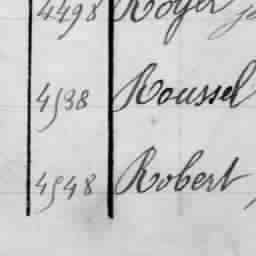 4498 Royer
4538 Roussel
4548 Robert